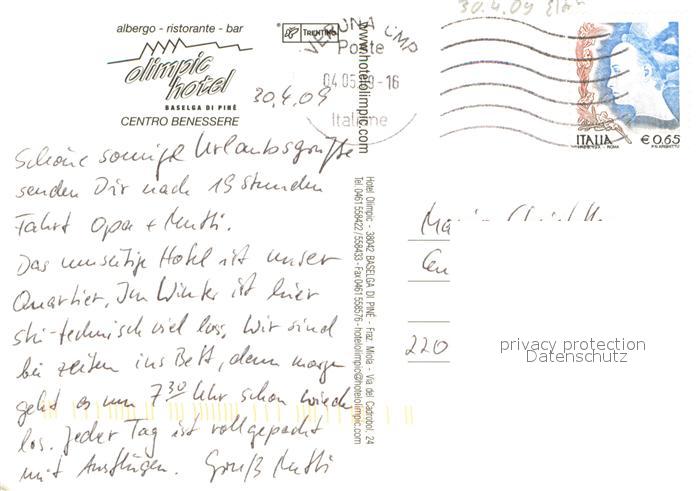 albergo - ristorante - bar
olimpic
hotel
BASELGA DI PINÉ
CENTRO BENESSERE
TRENTINO
www.hotelolimpic.com
VERONA CMP
Poste
04.05.09-16
Italiane
30.4.09
ITALIA
€ 0,65
30.4.09
Schöne sonnige Urlaubsgrüße
senden Dir nach 19 Stunden
Fahrt Opa + Mutti.
Das umseitige Hotel ist unser
Quartier, Im Winter ist hier
ski-technisch viel los, Wir sind
bei zeiten ins Bett, denn morgen
geht es um 7 30 Uhr schon wieder
los. Jeder Tag ist vollgepackt
mit Ausflügen. Gruß Mutti
Hotel Olimpic - 38042 BASELGA DI PINÉ - Fraz. Miola - Via del Capitol, 24
Tel. 0461558422 / 558433 - Fax 0461558576 - hotelolimpic@hotelolimpic.com
220
privacy protection
Datenschutz